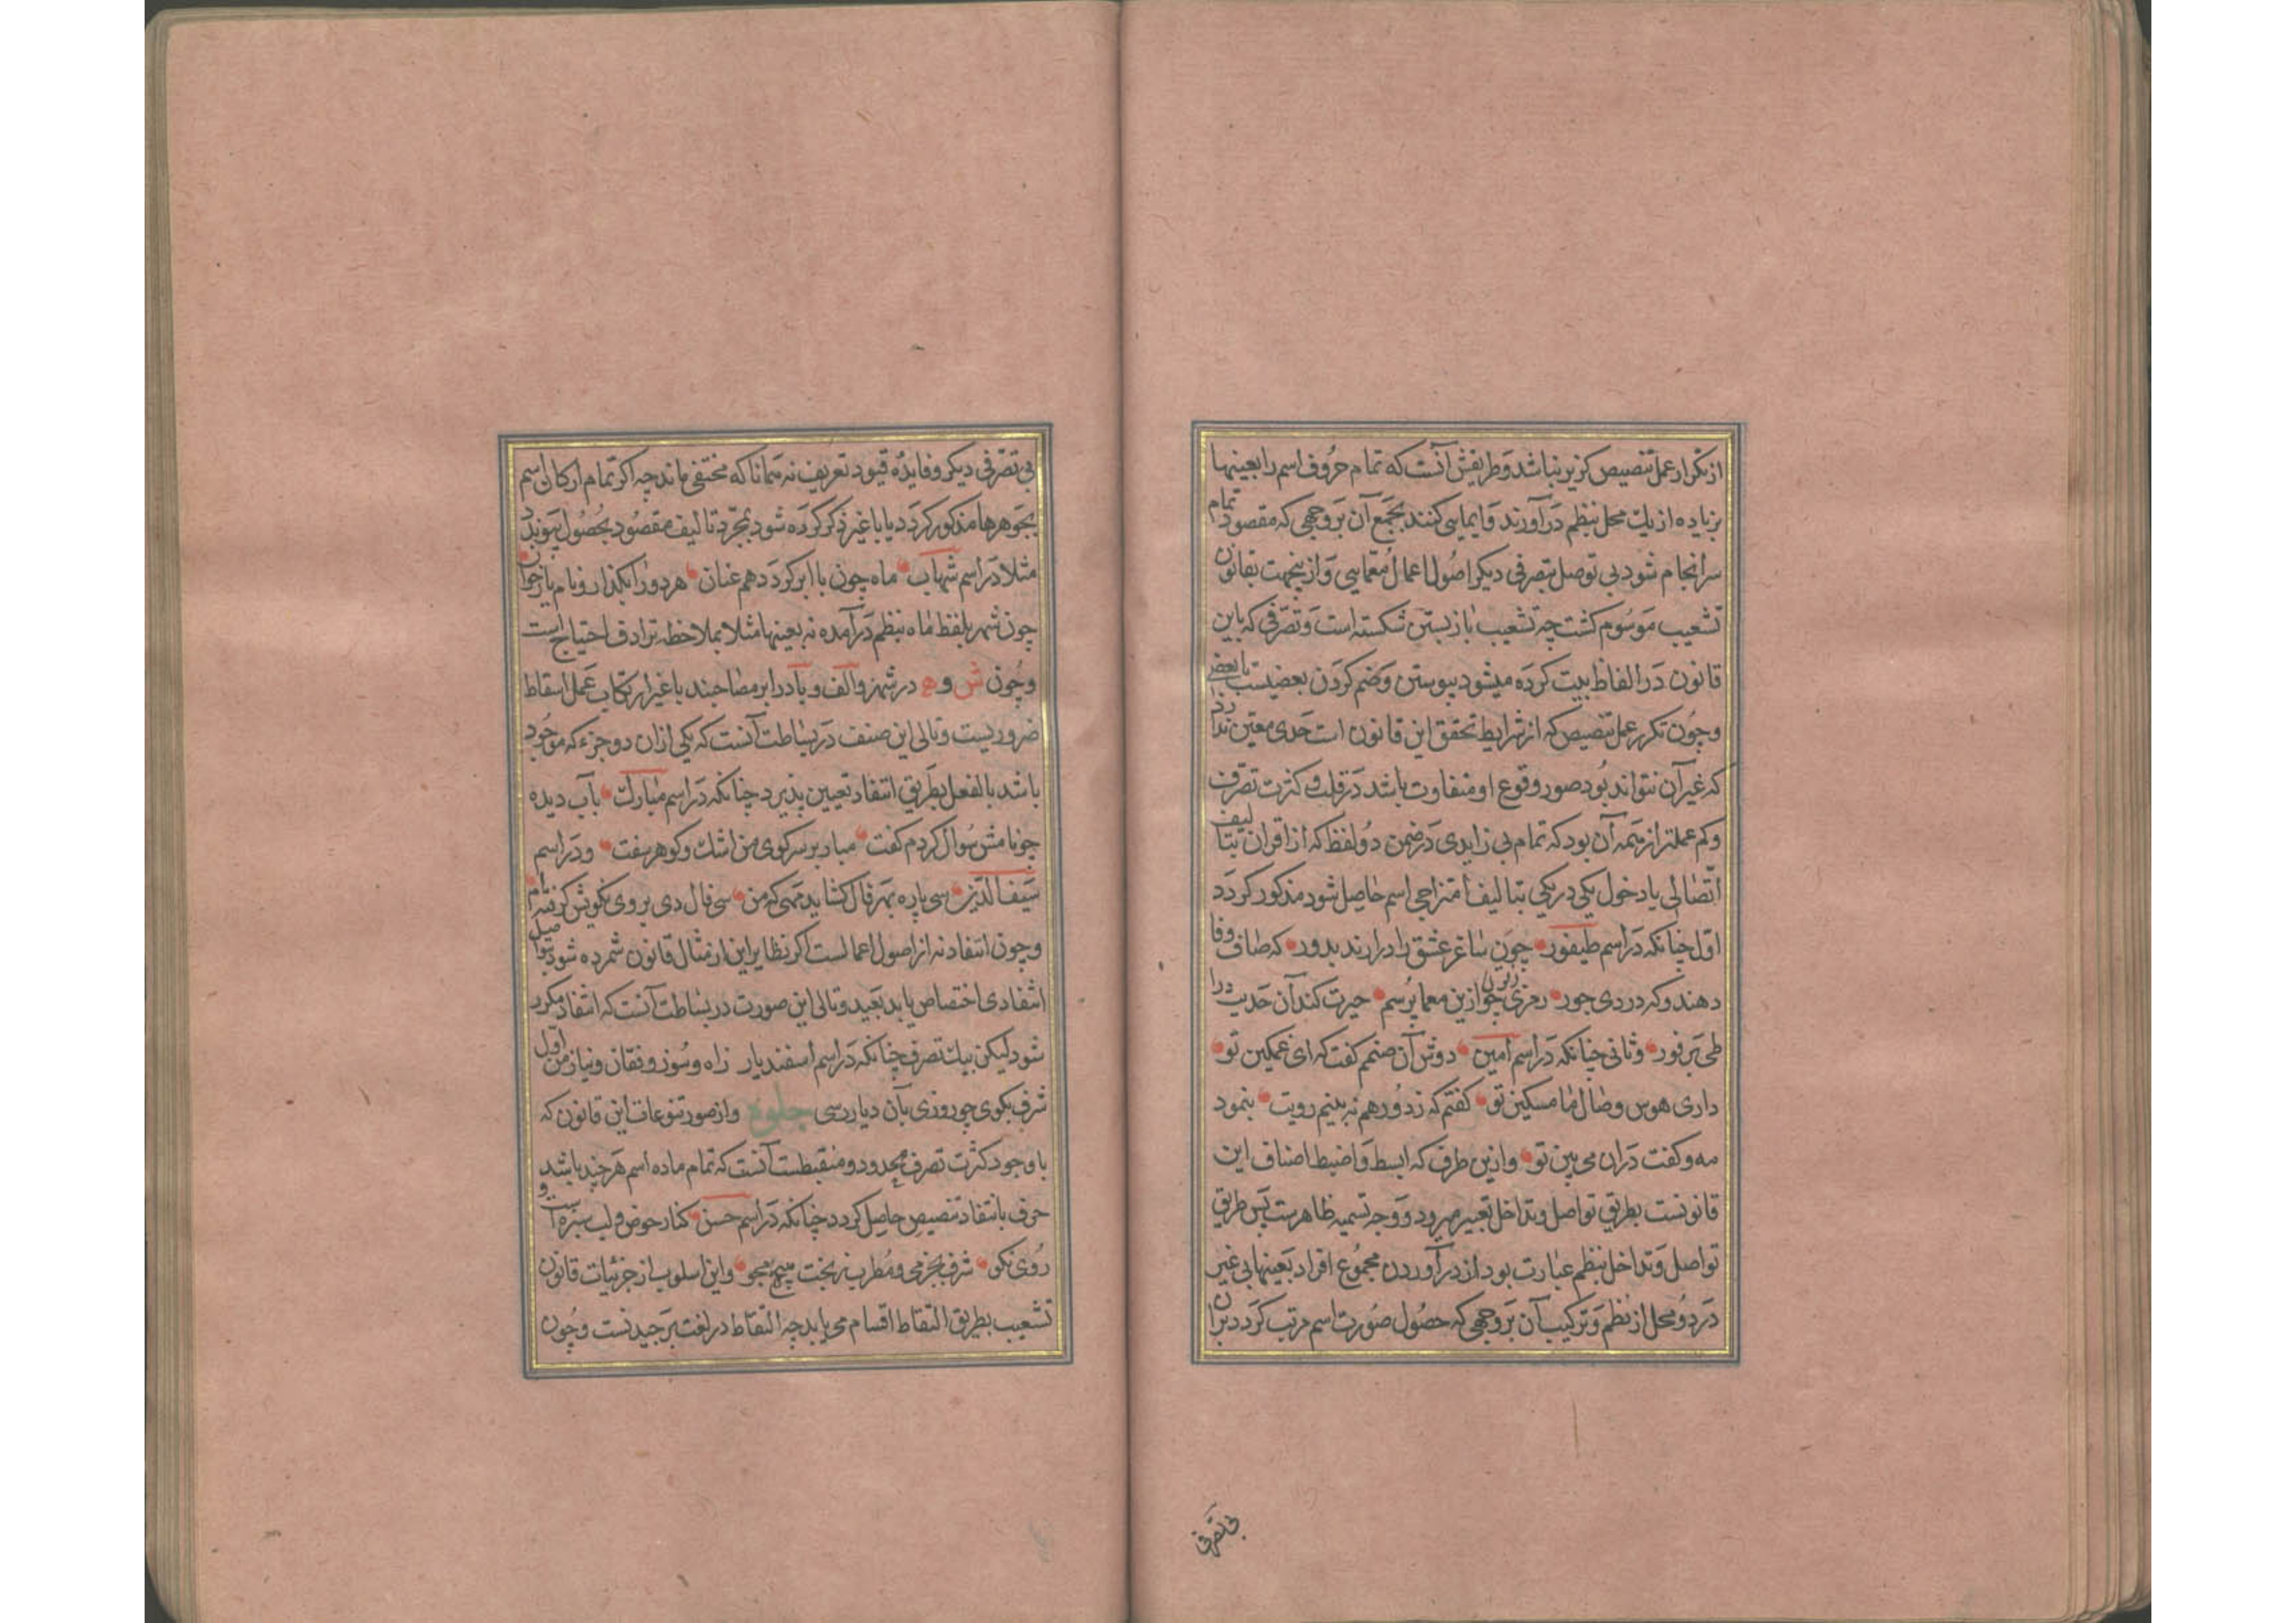 از تکرار عمل تنصیص کزیر نباشد وطریقش آنست که تمام حروف اسم را بعینها
بزیاده از یک محل بنظم درآورند وایمایی کنند بجمع آن بر وجهی که مقصود تمام
سرانجام شود بی توصل بتصرفی دیکر اصول اعمال معمایی وازینجهت بقانون
تشعیب موسوم کشت چه تشعیب باز بستن شکسته است وتصرفی که باین
قانون در الفاظ بیت کرده میشود پیوستن وضم کردن بعضیست با بعضی
وچون تکرر عمل تنصیص که از شرایط تحقق این قانون است حدی معین ندارد
که غیر آن نتواند بود صور وقوع او متفاوت باشد در قلت و کثرت تصرف
وکم عملتر از همه آن بود که تمام بی زایدی در ضمن دو لفظ که از اقران بتالیف
اتصالی یا دخول یکی در یکی بتالیف امتزاجی اسم حاصل شود مذکور کردد
اول چنانکه در اسم طیفور چون ساغر عشق را درارند بدور که صاف وفا
دهند وکه دردی جور رمزی چو ازین معما پرسم حیرت کند آن حدیث را
طی بر فور وثانی چنانکه در اسم امین دوش آن صنمم کفت که ای غمکین تو
داری هوس وصال ما مسکین تو کفتم که ز دور هم نه بینم رویت بنمود
مه وکفت دران می بین تو وازین طرف که ابسط واضبط اصناف این
قانونست بطریق تواصل وتداخل تعبیر میرود ووجه تسمیه ظاهرست پس طریق
تواصل وتداخل بنظم عبارت بود از درآوردن مجموع افراد بعینها بی غیر
در دو محل از نظم وترکیب آن بر وجهی که حصول صورت اسم مرتب کردد بران
بی تصرفی
بی تصرفی دیکر وفایده قیود تعریف نه همانا که مختفی ماند چه اکر تمام ارکان اسم
بجوهرها مذکور کردد یا با غیر ذکر کرده شود بمجرد تالیف مقصود بحصول پیوندد
مثلا در اسم شهاب ماه چون با ابر کردد هم عنان هر دو را بکذار ونام یار خوان
چون شهر بلفظ ماه بنظم درآمده نه بعینها مثلا بملاحظه ترادف احتیاج است
وچون ش و ه در شهر والف وبا در ابر مصاحبند با غیر ارتکاب عمل اسقاط
ضروریست وتالی این صنف در بساطت آنست که یکی ازان دو جزء که موجود
باشد بالفعل بطریق انتقاد تعیین پذیرد چنانکه در اسم مبارک بآب دیده
چو نامش سوال کردم کفت مبار بر سر کوی من اشک وکوهر سفت ودر اسم
سیف الدین سی پاره بهر فال کشاید مهی که من سی فال دی بروی نکویش کرفته ام
وچون انتقاد نه از اصول اعمالست اکر نظایر این از مثال قانون شمرده شود بتواصیل
انتقادی اختصاص یابد بعید وتالی این صورت در بساطت آنست که انتقاد مکرر
شود لیکن بیک تصرف چنانکه در اسم اسفندیار ز اه وسوز وفغان ونیاز من اول
شرف بکوی چو روزی بآن دیار رسی جلوه واز صور تنوعات این قانون که
با وجود کثرت تصرف محدود ومنقبطست آنست که تمام ماده اسم هر چند باشد
حرف بانتقاد تنصیص حاصل کردد چنانکه در اسم حسن کنار حوض ولب سبزه است و
روی نکو شرف بجز می ومطرب ز بخت هیچ مجو واین اسلوب از جزئیات قانون
تشعیب بطریق التقاط اقسام می یابد چه التقاط در لغت برچیدنست وچون